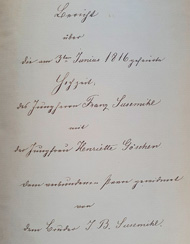 Bericht
über
die am 3ten Januar 1816 gefeierte
Hochzeit,
des Jungherrn Franz Susemihl
mit
der Jungfrau Henriette
dem verbundenen Paare gewidmet
von
dem Bruder J. B. Susemihl.